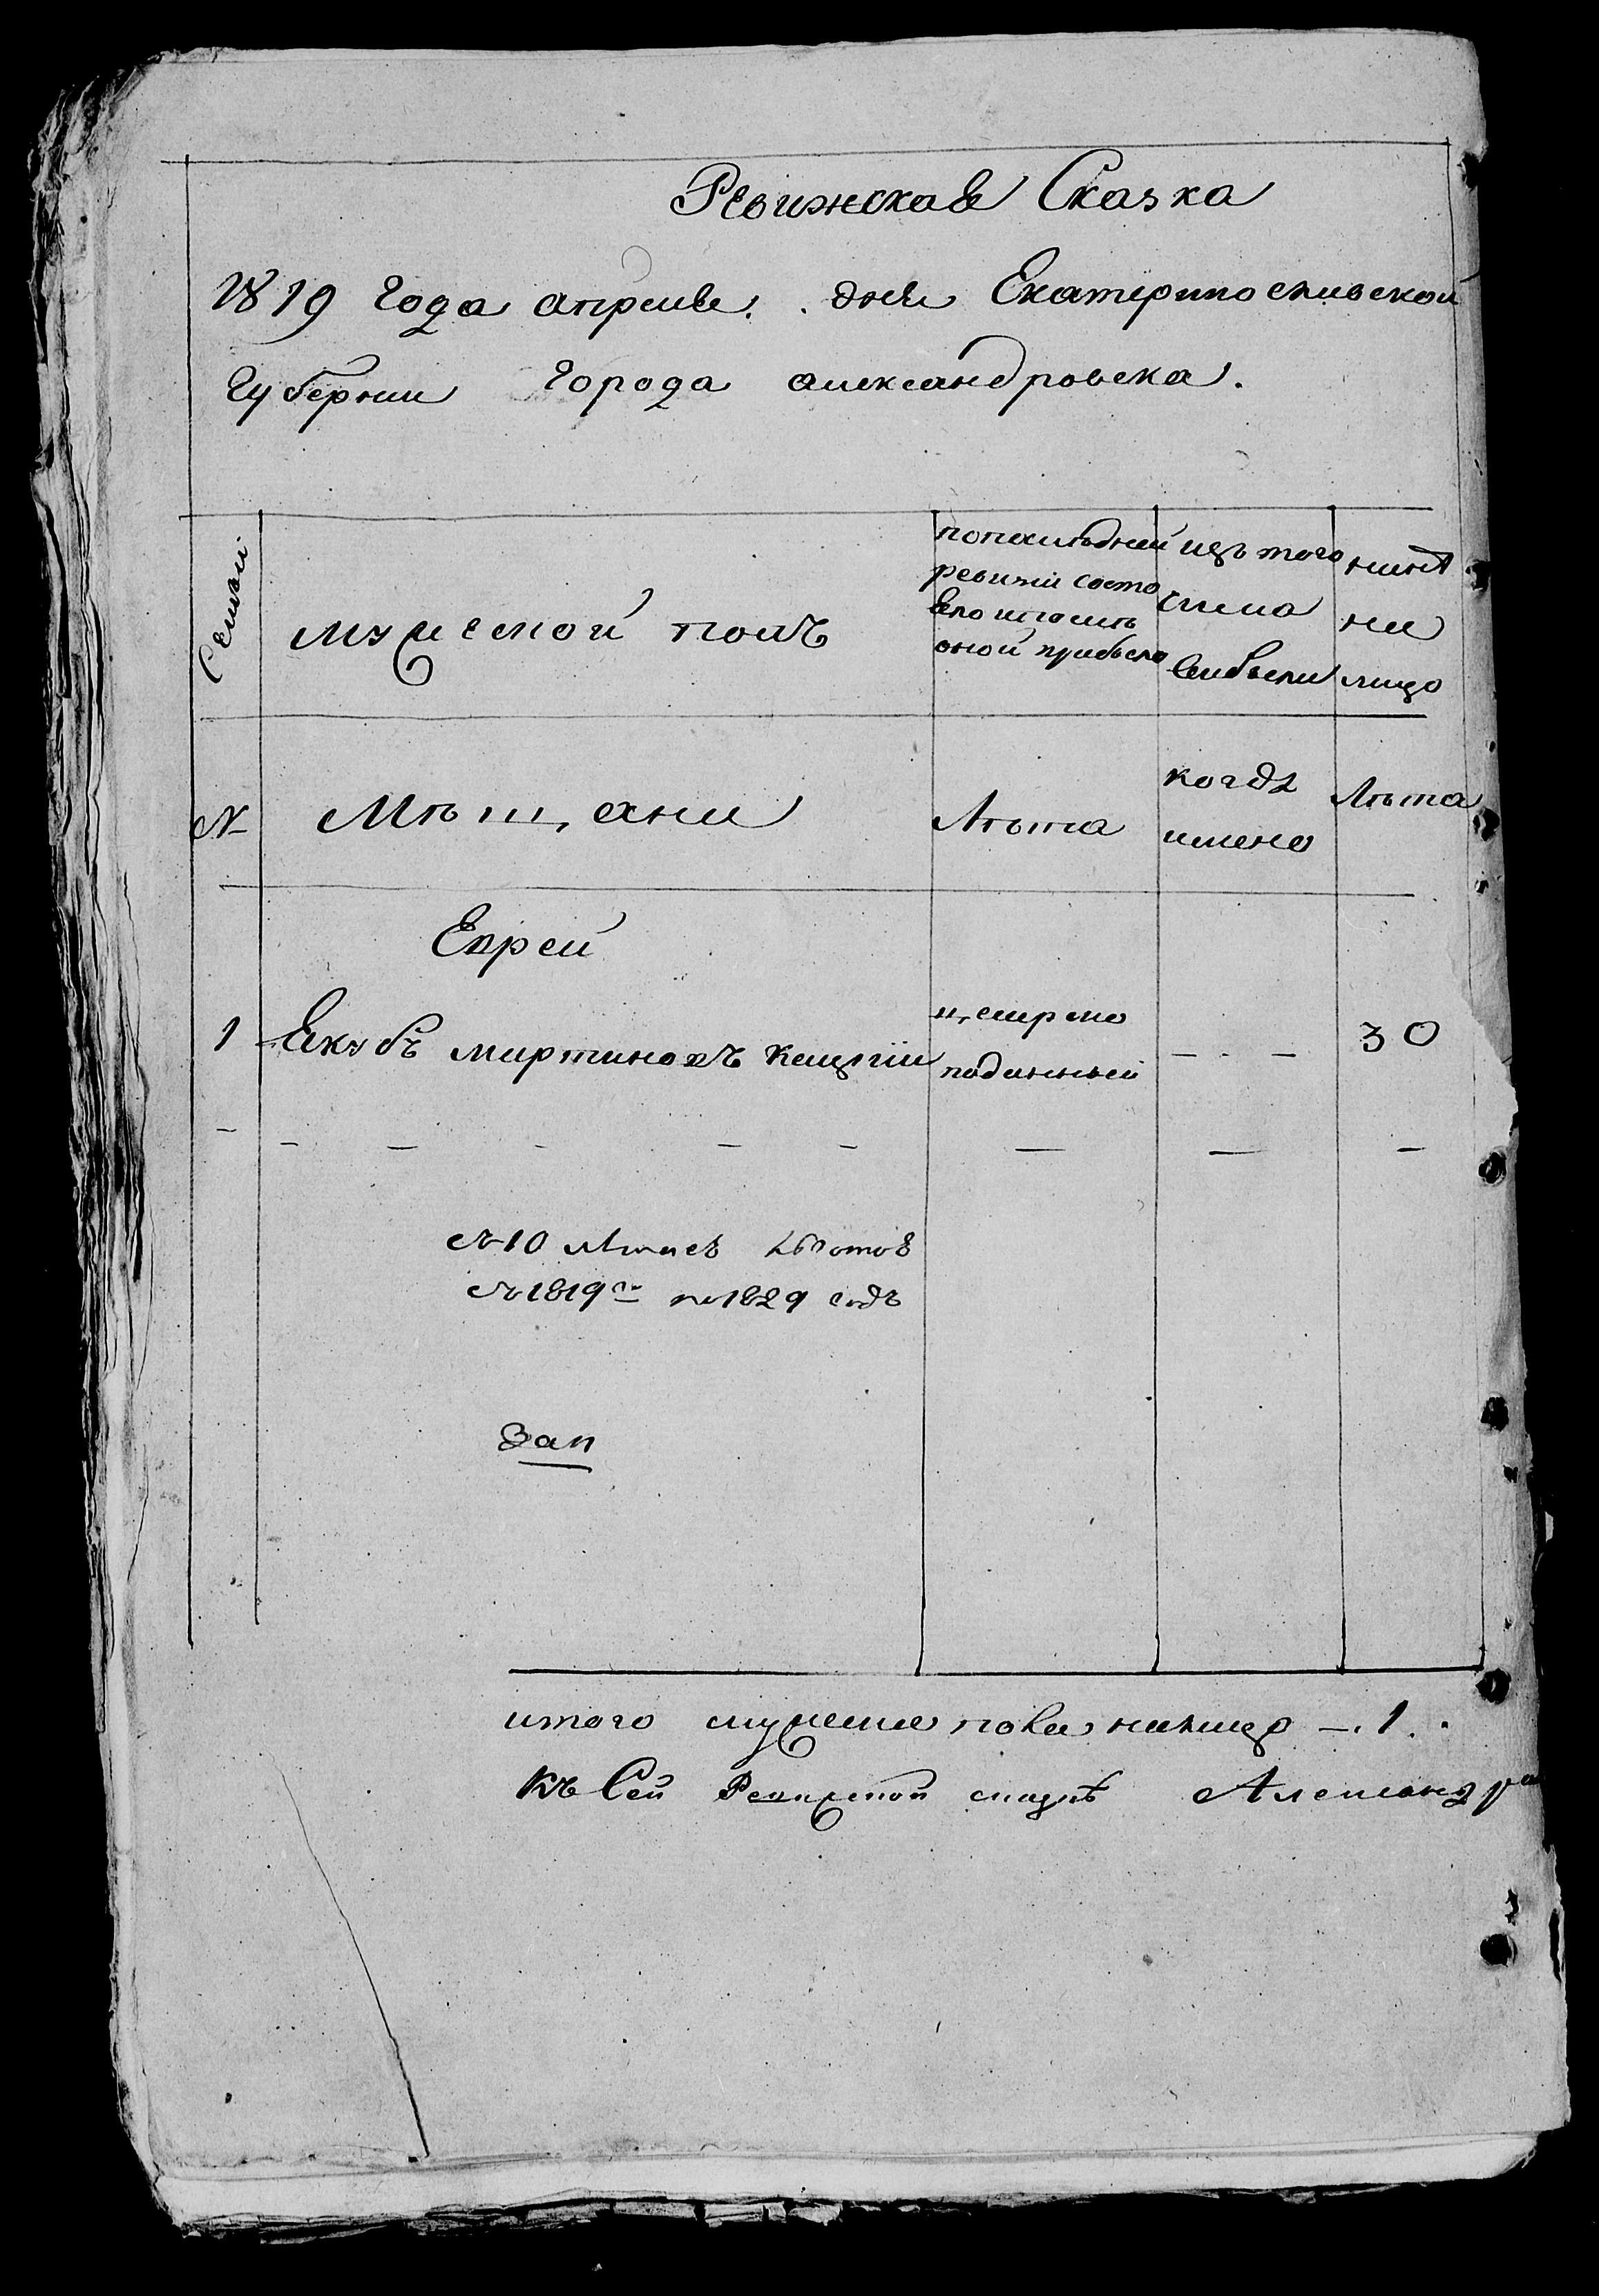 Ревижская Сказка
1819 Года апреля . дня Екатеринославской
Губернии Города александровска.
Семьи
мужеской полъ
попоследней
ревизіи состо
яло ипосле
оной прибыло
изъ того
числа
выбыли
нынѣ
на
лицо
№
Мѣщани
Лѣта
когда
имено
Лѣта
Еврей
1 Якубъ мартиновъ
цесарско
поданный
- . - 30
съ 10 Лѣтнею льготою
съ 1819го по 1829 годъ
Зап
итого мужеска пола налицо - . 1 .
Къ Сей Ревижской сказкѣ Александро